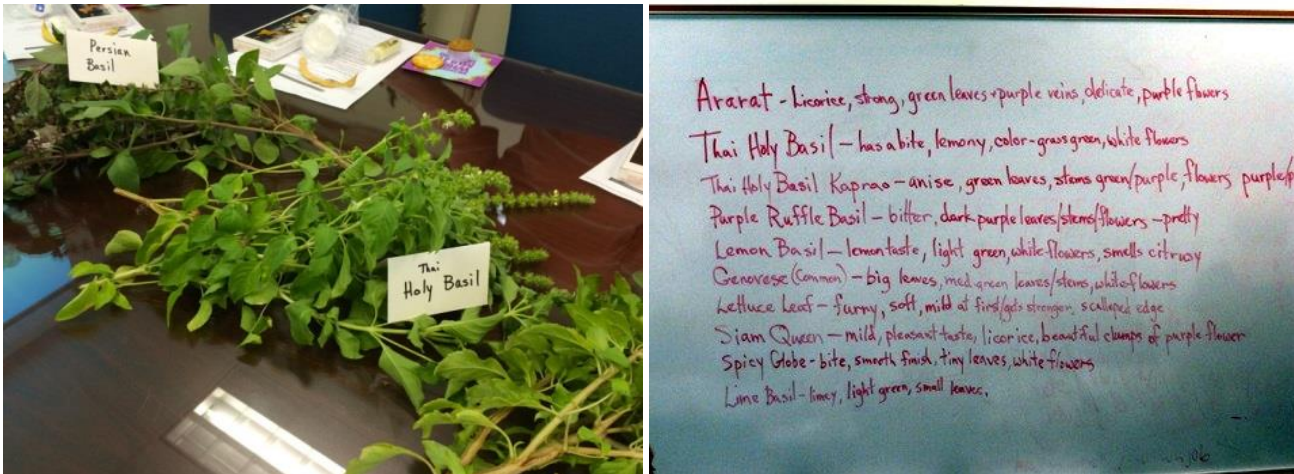 Persian
Basil
Thai
Holy Basil
Ararat - Licorice, strong, green leaves + purple veins, delicate, purple flowers
Thai Holy Basil - has a bite, lemony, color - grass green, white flowers
Thai Holy Basil Kaprao - anise, green leaves, stems green/purple, flowers purple/p
Purple Ruffle Basil - bitter, dark purple leaves/stems/flowers - pretty
Lemon Basil - lemon taste, light green, white flowers, smells citrusy
Genovese (Common) - big leaves, med green leaves/stems, white flowers
Lettuce Leaf - furry, soft, mild at first/gets stronger, scalloped edge
Siam Queen - mild, pleasant taste, licorice, beautiful clumps of purple flower
Spicy Globe - bite, smooth finish, tiny leaves, white flowers
Lime Basil - limey, light green, small leaves.